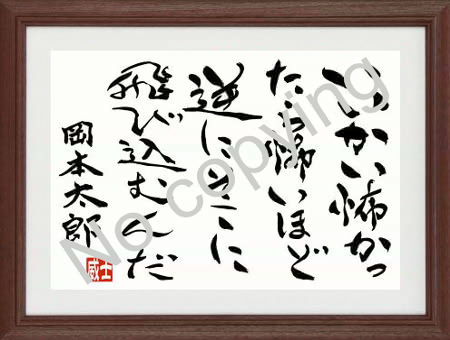 いいかい怖かっ
たら怖いほど
逆にそこに
飛び込むんだ
岡本太郎
威士
No copying